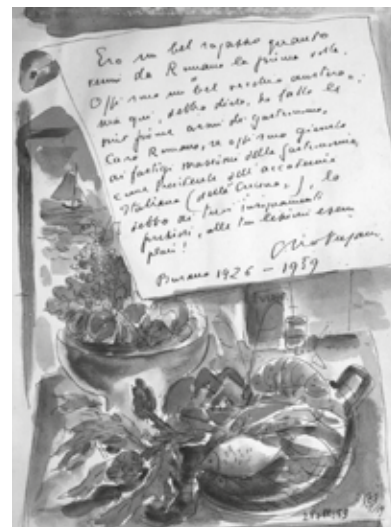 Ero un bel ragazzo quando
venni da Romano la prima volta.
Oggi sono un bel vecchio austero,
ma qui, debbo dirlo, ho fatto le
mie prime armi di gastronomo.
Caro Romano, se oggi sono giunto
ai fastigi massimi della gastronomia,
come Presidente dell'accademia
Italiana (della Cucina,), lo
debbo ai tuoi insegnamenti
preziosi, alle tue lezioni esem
plari!
Burano 1926 - 1959